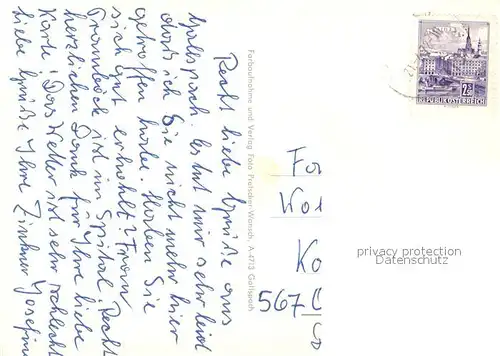 Recht liebe Grüße aus
Gallspach. Es tut mir sehr leid
dass ich Sie nicht mehr hier
getroffen habe. Haben Sie
sich gut erholt? Frau
ist im Spital. Recht
herzlichen Dank für Ihre liebe
Karte! Das Wetter ist sehr schlecht
liebe Grüße Ihre Josefine
Farbaufnahme und Verlag Foto A-4713 Gallspach
Fa
Ko
567
REPUBLIK ÖSTERREICH
privacy protection
Datenschutz